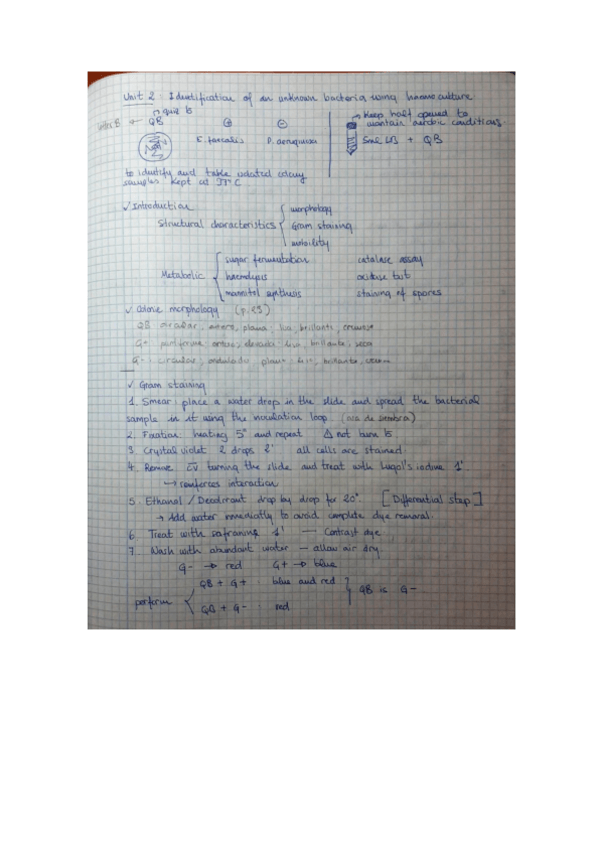 Unit 2 : Identification of an unknown bacteria using haemoculture
quiz
QB
⊕ ⊖
E. faecalis P. aeruginosa
Keep half opened to
maintain aerobic conditions.
5mL LB + QB
to identify and
samples kept at
✓ Introduction
Structural characteristics { morphology
Gram staining
mobility
Metabolic { sugar fermentation
haemolysis
mannitol synthesis
catalase assay
oxidase test
staining of spores
✓ Colonie morphology (p.25)
QB circular, entero, plana, lisa, brillante, cremosa
G+ puntiforme, entero, elevada, lisa, brillante, seca
G- : circular, ondulado, plana, lisa, brillante,
✓ Gram staining
1. Smear : place a water drop in the slide and spread the bacterial
sample in it using the inoculation loop (asa de siembra)
2. Fixation heating 5" and repeat ⚠ not burn
3. Crystal violet 2 drops 2' all cells are stained.
4. Remove CV turning the slide and treat with Lugol's iodine 1'
↳ reinforces interaction
5. Ethanol / Decolorant drop by drop for 20". [Differential step]
→ Add water immediatly to avoid complete dye removal.
6. Treat with safranine 1' — Contrast dye
7. Wash with abundant water — allow air dry.
G- → red G+ → blue
perform { QB + G+ : blue and red
QB + G- : red
} QB is G-